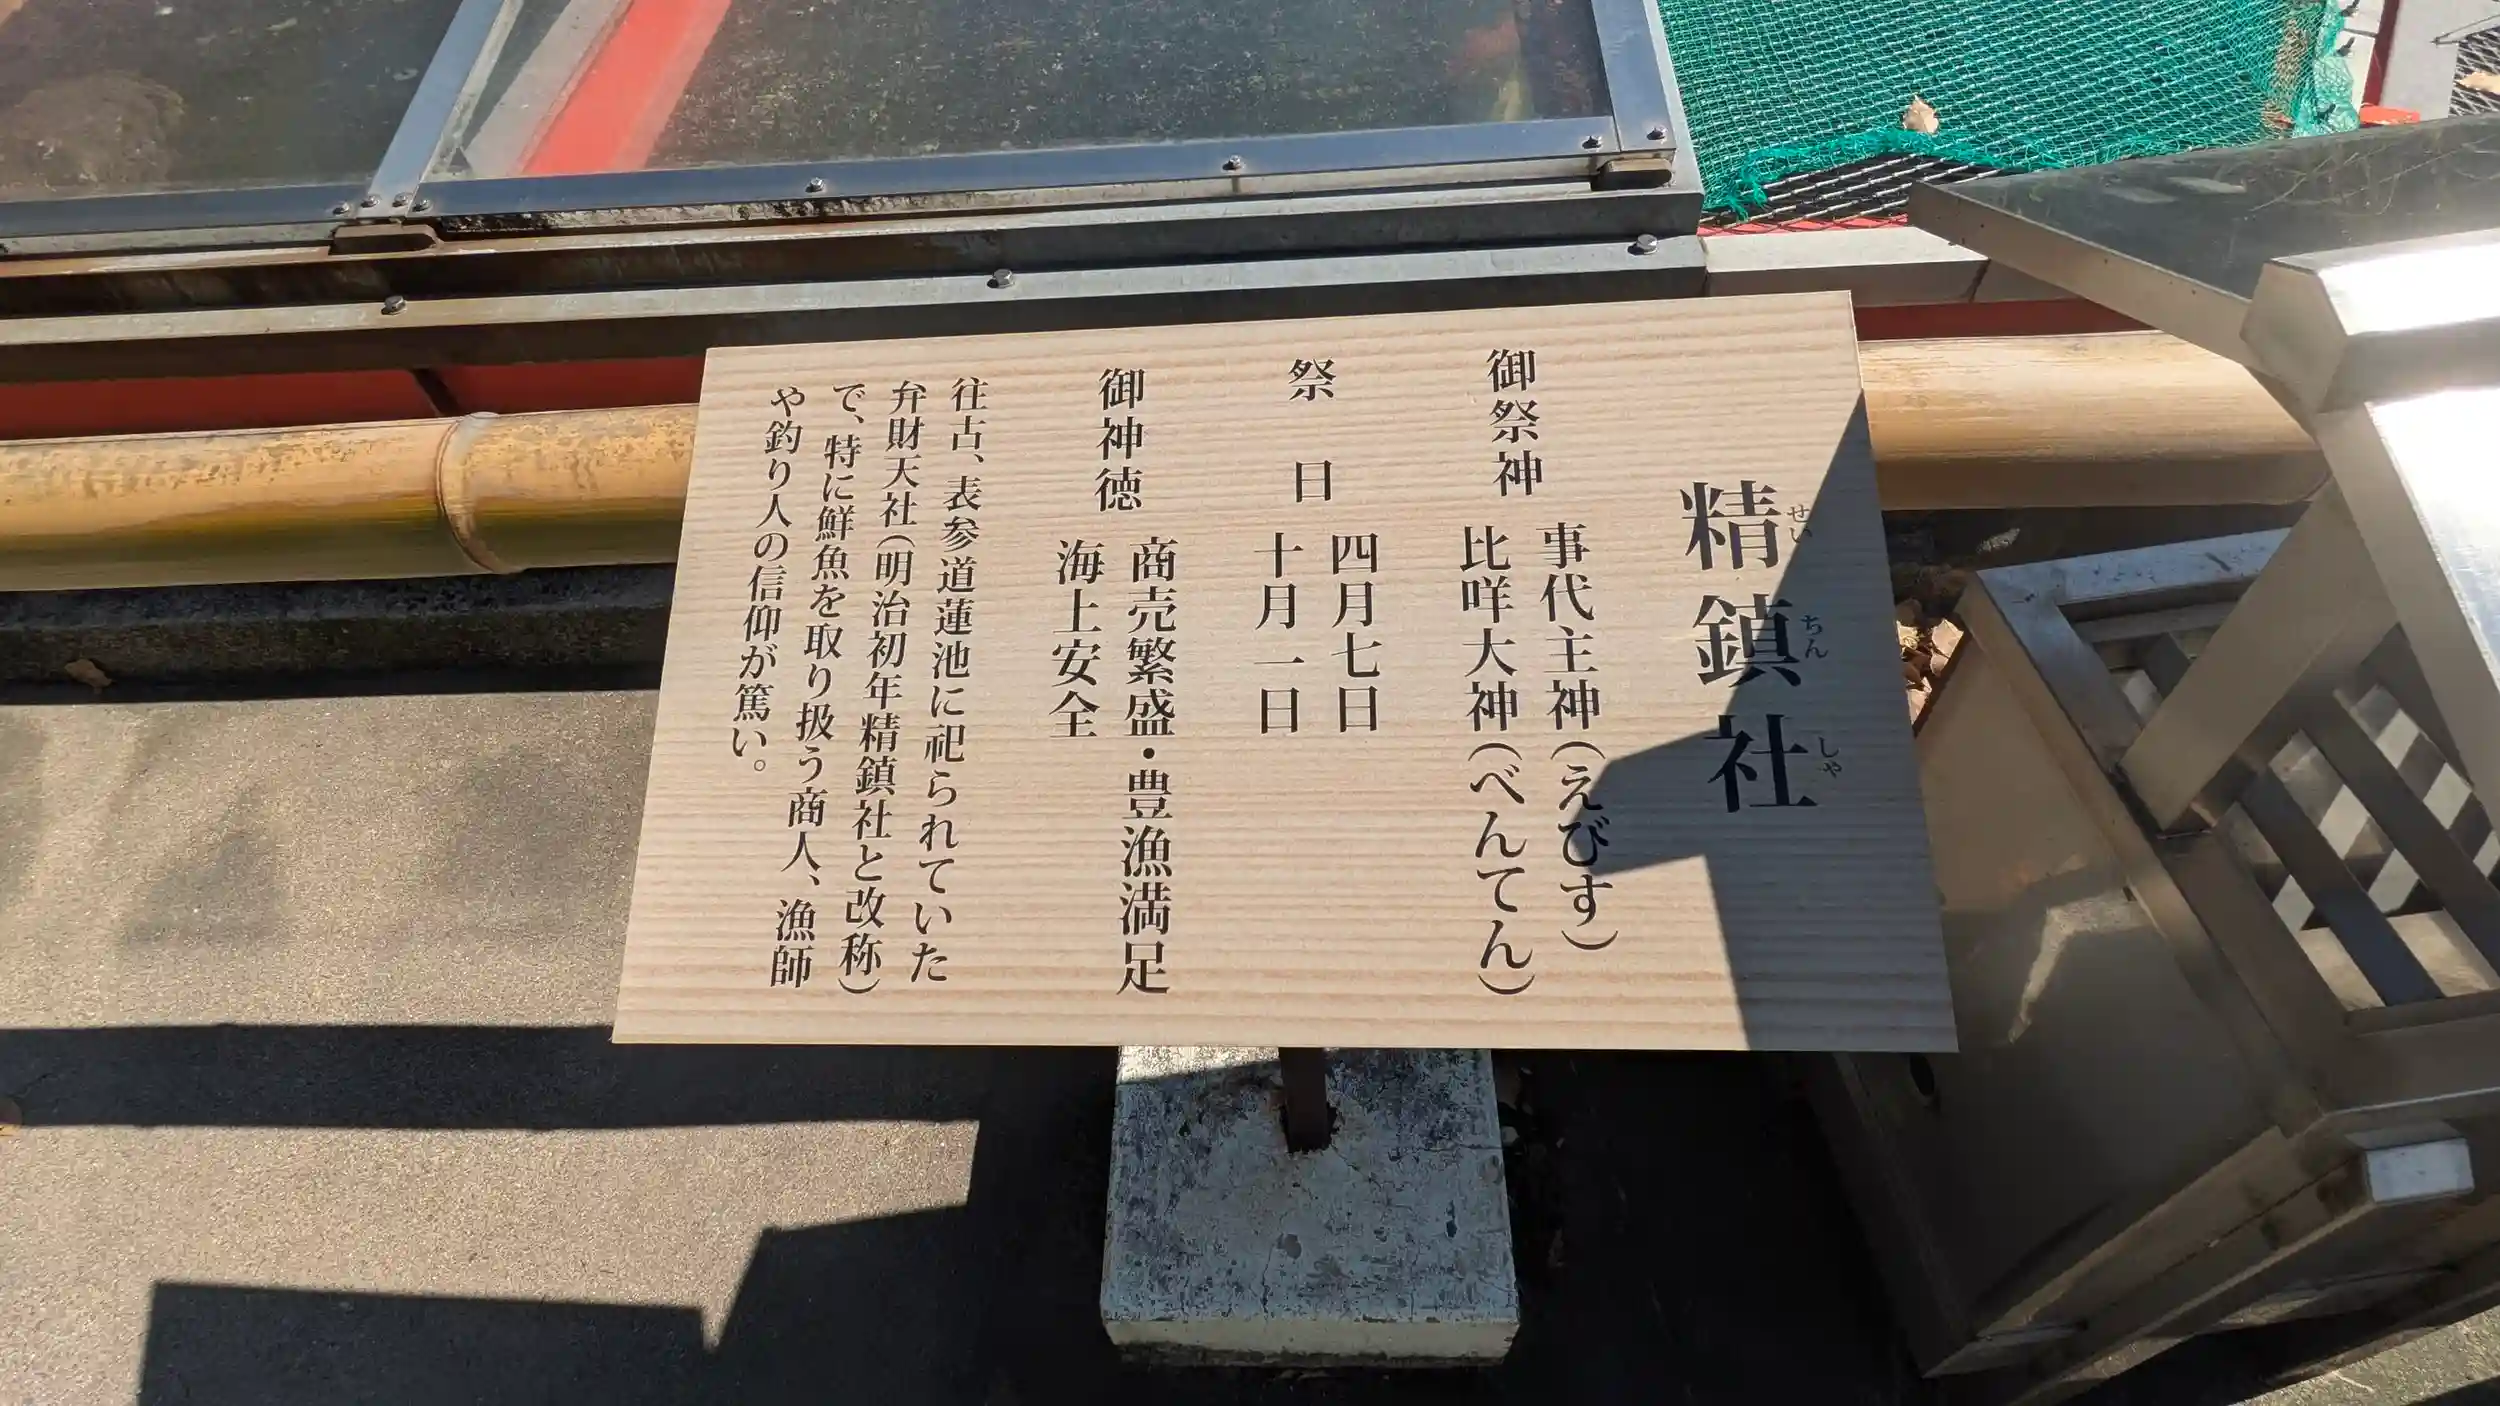 精鎮社
せいちんしゃ
御祭神
事代主神(えびす)
比咩大神(べんてん)
祭 日
四月七日
十月一日
御神徳
商売繁盛・豊漁満足
海上安全
往古、表参道蓮池に祀られていた
弁財天社(明治初年精鎮社と改称)
で、特に鮮魚を取り扱う商人、漁師
や釣り人の信仰が篤い。